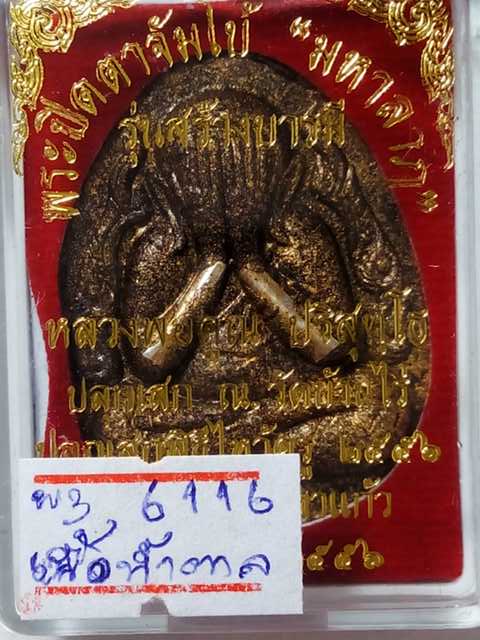 พระปิดตาจัมโบ้ "มหาลาภ"
รุ่นสร้างบารมี
หลวงพ่อคูณ ปริสุทฺโธ
ปลุกเสก ณ วัดบ้านไร่
๒๕๕๖
แก้ว
๕๕๖
6116
เนื้อน้ำตาล